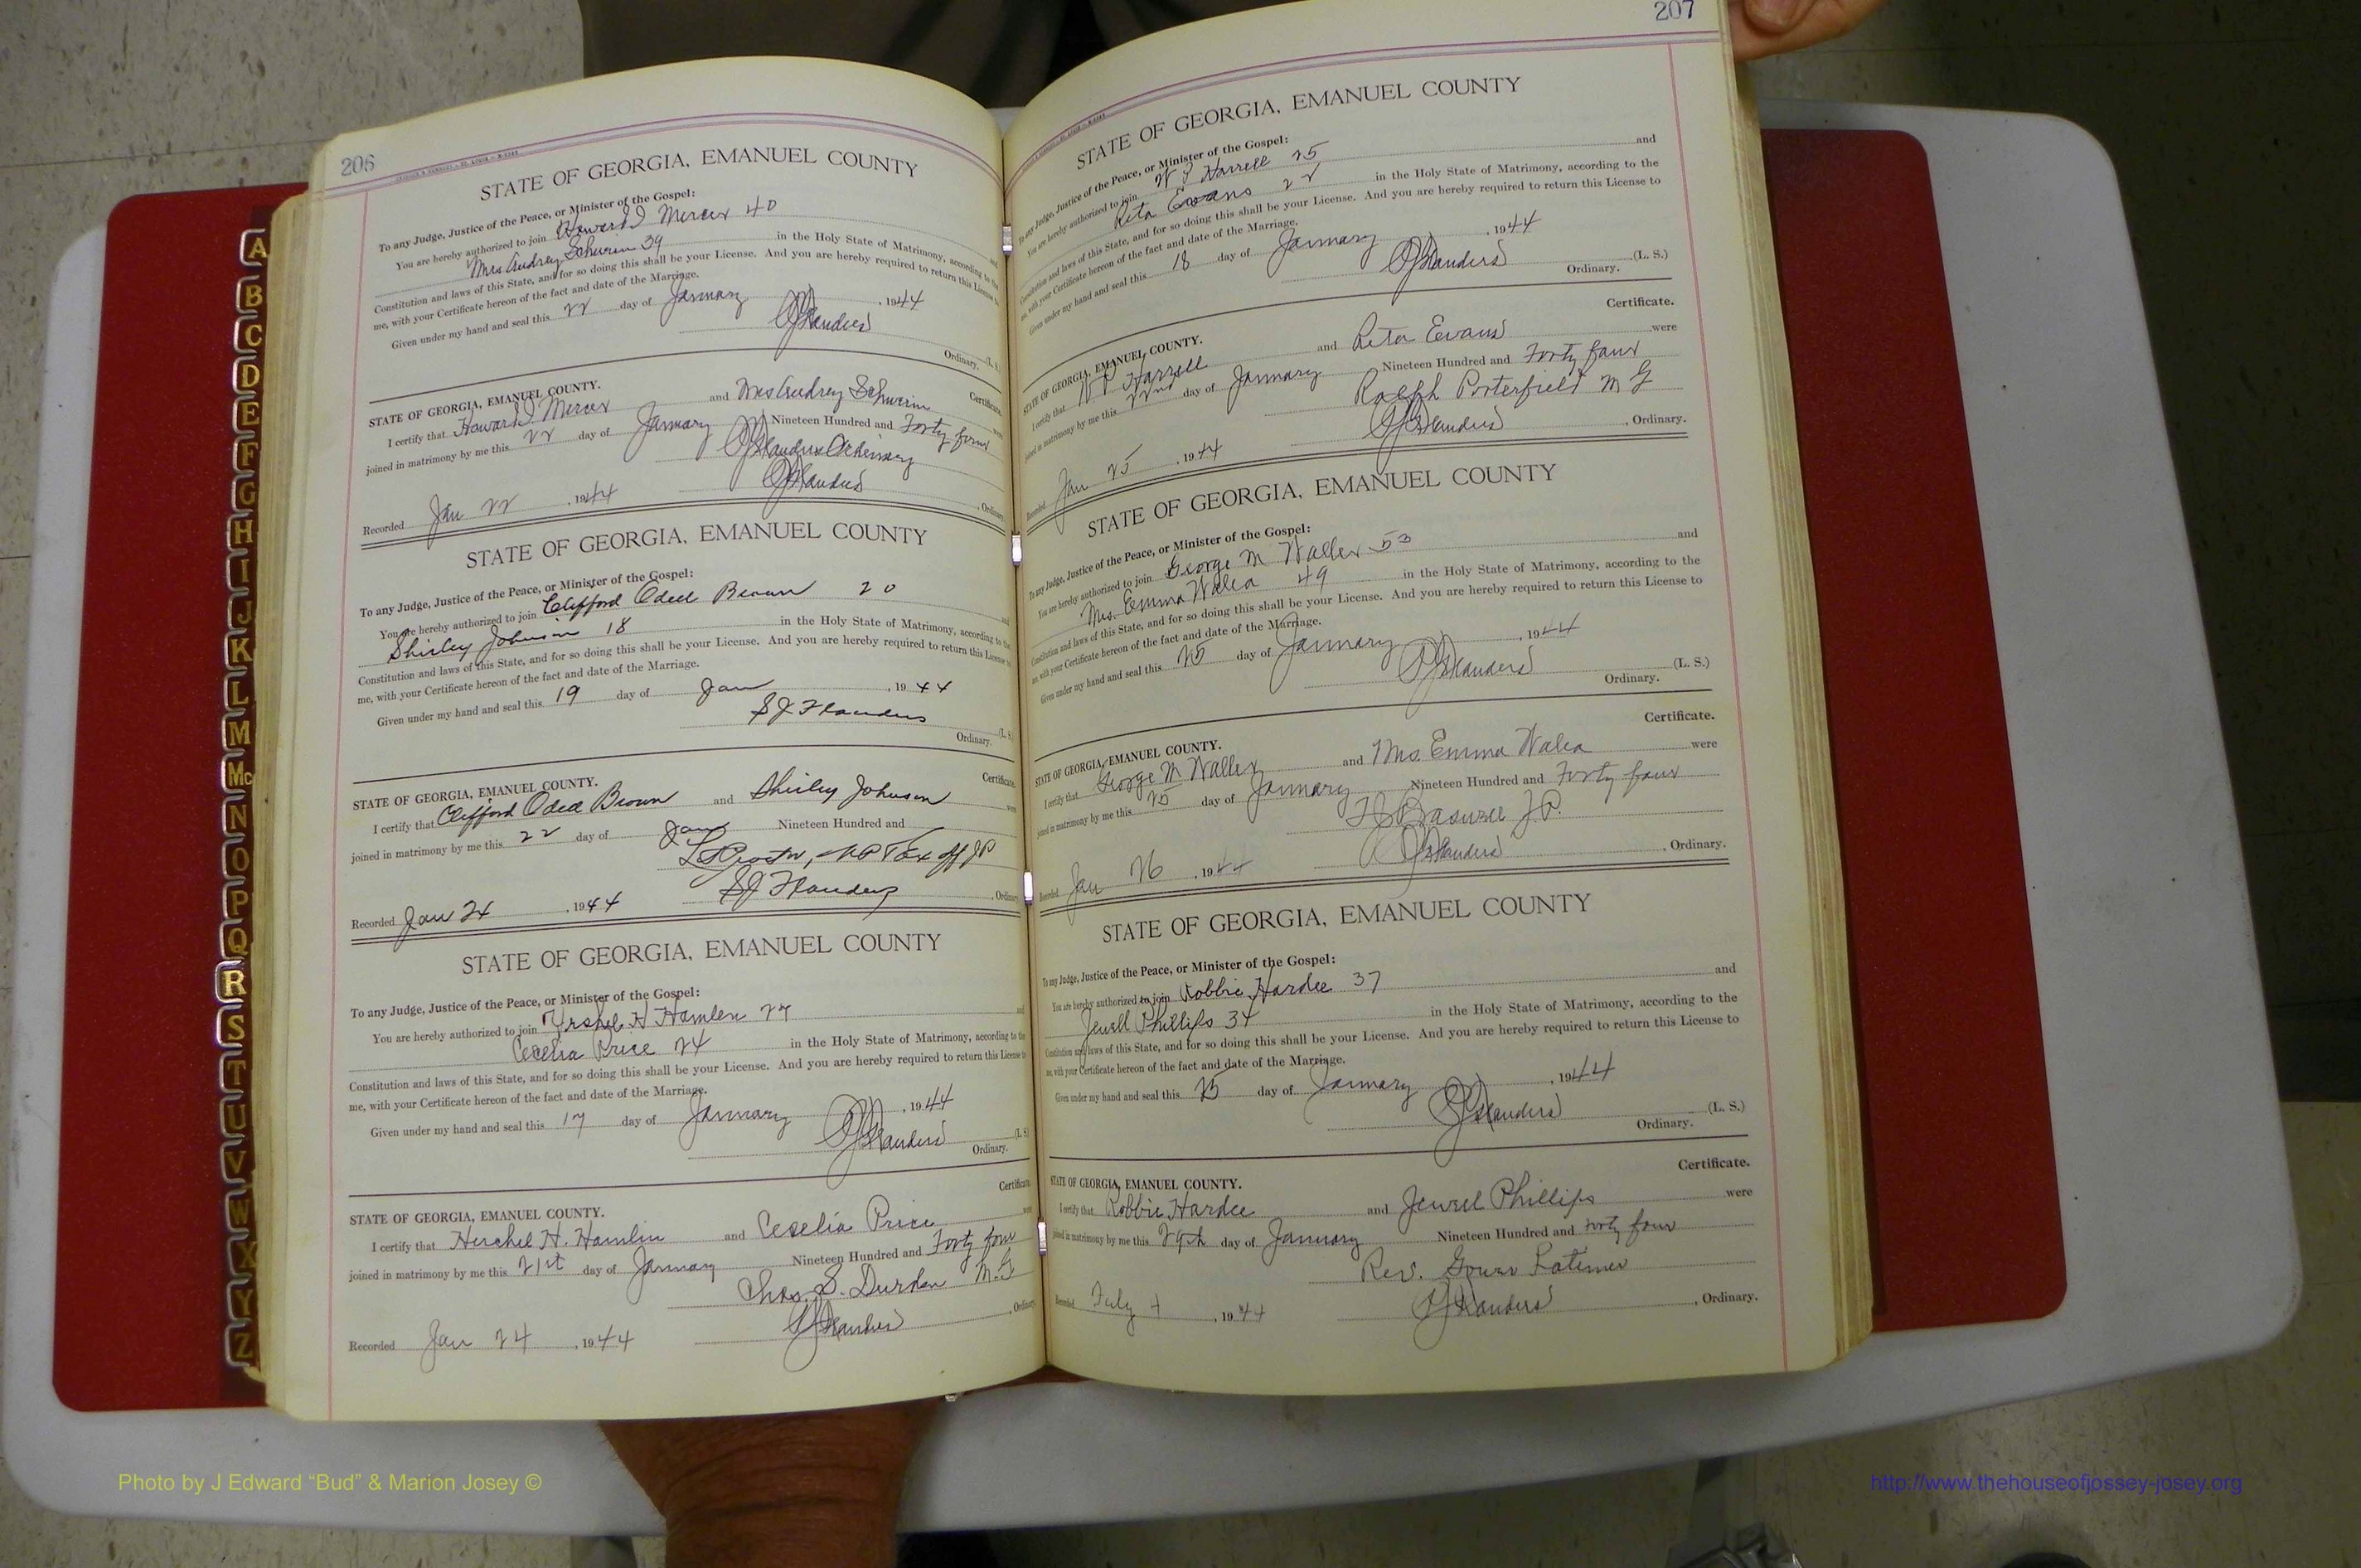 206
STATE OF GEORGIA, EMANUEL COUNTY
To any Judge, Justice of the Peace, or Minister of the Gospel:
You are hereby authorized to join Howard J Mercer 40 and
Mrs Audrey Schwerin 39 in the Holy State of Matrimony, according to the
Constitution and laws of this State, and for so doing this shall be your License. And you are hereby required to return this License to
me, with your Certificate hereon of the fact and date of the Marriage.
Given under my hand and seal this 22 day of January, 1944
(L. S.)
Ordinary.
Certificate.
STATE OF GEORGIA, EMANUEL COUNTY.
I certify that Howard J. Mercer and Mrs Audrey Schwerin were
joined in matrimony by me this 22 day of January Nineteen Hundred and Forty four
Flanders Ordinary
Flanders
Recorded Jan 22, 1944, Ordinary.
STATE OF GEORGIA, EMANUEL COUNTY
To any Judge, Justice of the Peace, or Minister of the Gospel:
You are hereby authorized to join Clifford Odell Brown 20 and
Shirley Johnson 18 in the Holy State of Matrimony, according to the
Constitution and laws of this State, and for so doing this shall be your License. And you are hereby required to return this License to
me, with your Certificate hereon of the fact and date of the Marriage.
Given under my hand and seal this 19 day of Jan, 1944
SJ Flanders (L. S.)
Ordinary.
Certificate.
STATE OF GEORGIA, EMANUEL COUNTY.
I certify that Clifford Odell Brown and Shirley Johnson were
joined in matrimony by me this 22 day of Jan Nineteen Hundred and
SJ Flanders
Recorded Jan 24, 1944, Ordinary.
STATE OF GEORGIA, EMANUEL COUNTY
To any Judge, Justice of the Peace, or Minister of the Gospel:
You are hereby authorized to join H Hamlin 27 and
Cecelia Price 24 in the Holy State of Matrimony, according to the
Constitution and laws of this State, and for so doing this shall be your License. And you are hereby required to return this License to
me, with your Certificate hereon of the fact and date of the Marriage.
Given under my hand and seal this 17 day of January, 1944
Flanders (L. S.)
Ordinary.
Certificate.
STATE OF GEORGIA, EMANUEL COUNTY.
I certify that Herchel H. Hamlin and Cecelia Price were
joined in matrimony by me this 21st day of January Nineteen Hundred and Forty four
Chas. S. Durden M.G
Flanders, Ordinary.
Recorded Jan 24, 1944
207
STATE OF GEORGIA, EMANUEL COUNTY
To any Judge, Justice of the Peace, or Minister of the Gospel:
You are hereby authorized to join W P Harrell 25 and
Rita Evans 22 in the Holy State of Matrimony, according to the
Constitution and laws of this State, and for so doing this shall be your License. And you are hereby required to return this License to
me, with your Certificate hereon of the fact and date of the Marriage.
Given under my hand and seal this 18 day of January, 1944
Flanders (L. S.)
Ordinary.
Certificate.
STATE OF GEORGIA, EMANUEL COUNTY.
I certify that W P Harrell and Rita Evans were
joined in matrimony by me this 22nd day of January Nineteen Hundred and Forty four
Ralph Porterfield M G
Flanders, Ordinary.
Recorded Jan 25, 1944
STATE OF GEORGIA, EMANUEL COUNTY
To any Judge, Justice of the Peace, or Minister of the Gospel:
You are hereby authorized to join George M Waller 53 and
Mrs. Emma 49 in the Holy State of Matrimony, according to the
Constitution and laws of this State, and for so doing this shall be your License. And you are hereby required to return this License to
me, with your Certificate hereon of the fact and date of the Marriage.
Given under my hand and seal this 25 day of January, 1944
Flanders (L. S.)
Ordinary.
Certificate.
STATE OF GEORGIA, EMANUEL COUNTY.
I certify that George M Waller and Mrs. Emma were
joined in matrimony by me this 25 day of January Nineteen Hundred and Forty four
J.P.
Flanders, Ordinary.
Recorded Jan 26, 1944
STATE OF GEORGIA, EMANUEL COUNTY
To any Judge, Justice of the Peace, or Minister of the Gospel:
You are hereby authorized to join Robbie Hardee 37 and
Jewell Phillips 34 in the Holy State of Matrimony, according to the
Constitution and laws of this State, and for so doing this shall be your License. And you are hereby required to return this License to
me, with your Certificate hereon of the fact and date of the Marriage.
Given under my hand and seal this 25 day of January, 1944
Flanders (L. S.)
Ordinary.
Certificate.
STATE OF GEORGIA, EMANUEL COUNTY.
I certify that Robbie Hardee and Jewell Phillips were
joined in matrimony by me this 29th day of January Nineteen Hundred and Forty four
Rev. Latimer
Flanders, Ordinary.
Recorded July 4, 1944
A
B
C
D
E
F
G
H
I
J
K
L
M
Mc
N
O
P
Q
R
S
T
U
V
W
X
Y
Z
Photo by J Edward “Bud” & Marion Josey ©
http://www.thehouseofjossey-josey.org